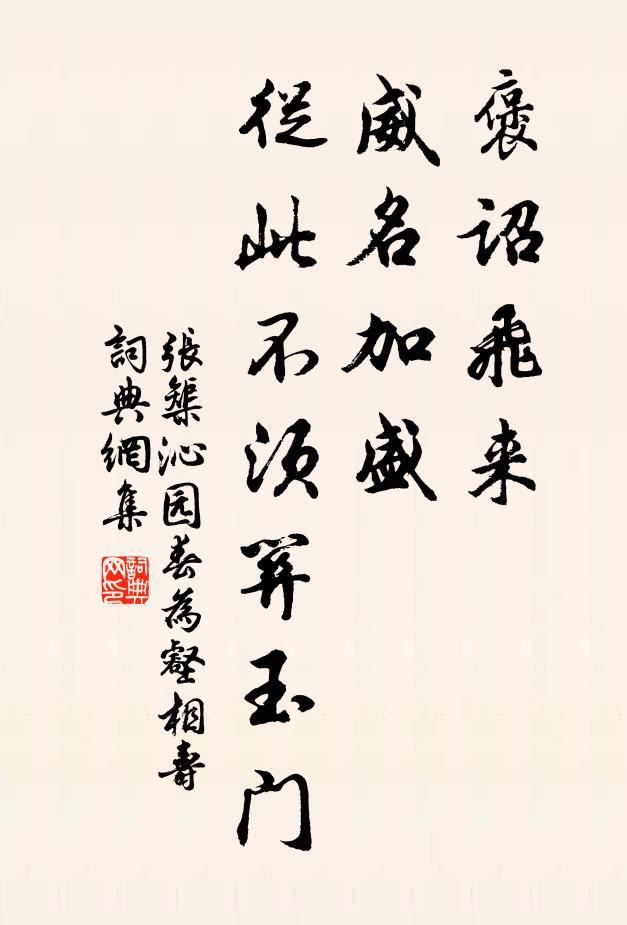 褒詔飛来
威名加盛
從此不須玉門
張榘沁园春為壑相壽
詞典網集
詞典网印